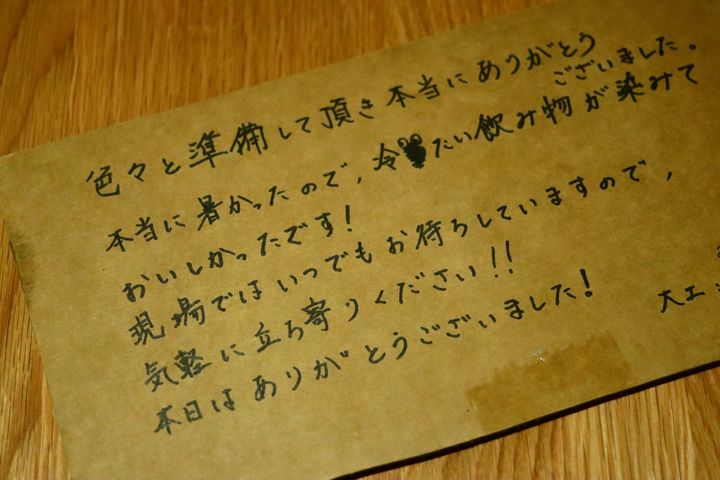 色々と準備して頂き本当にありがとう
ございました。
本当に暑かったので、冷たい飲み物が染みて
おいしかったです!
現場ではいつでもお待ちしていますので、
気軽に立ち寄りください!!
本日はありがとうございました!
大工